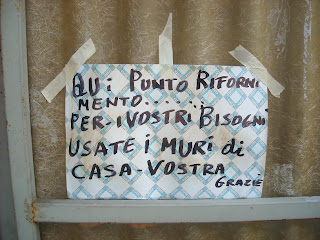 QUi PUNTO RIFORNi
MENTO......
PER i VOSTRi BISOGNi
USATE i MURi di
CASA-VOSTRA
GRAZiE